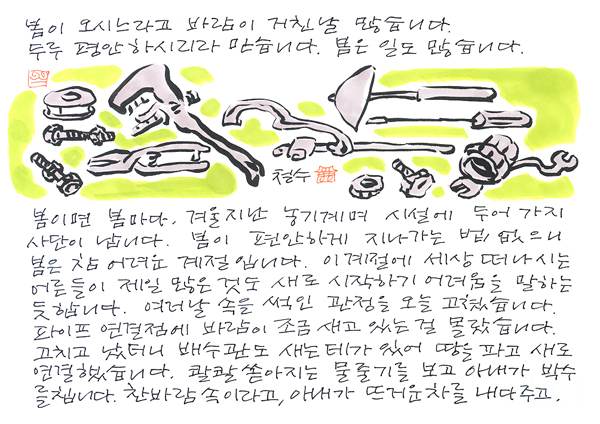 봄이 오시느라고 바람이 거친날 많습니다.
두루 편안하시리라 믿습니다. 봄은 일도 많습니다.
철수
봄이면 봄마다. 겨울지난 농기계며 시설에 두어 가지
사단이 납니다. 봄이 편안하게 지나가는 법 없으니
봄은 참 어려운 계절입니다. 이계절에 세상 떠나시는
어른들이 제일 많은 것도 새로 시작하기 어려움을 말하는
듯합니다. 여러날 속을 썩인 관정을 오늘 고쳤습니다.
파이프 연결점에 바람이 조금 새고 있는걸 몰랐습니다.
고치고 났더니 배수관도 새는데가 있어 땅을 파고 새로
연결했습니다. 콸콸 쏟아지는 물줄기를 보고 아내가 박수
를칩니다. 찬바람 속이라고, 아내가 뜨거운차를 내다주고.